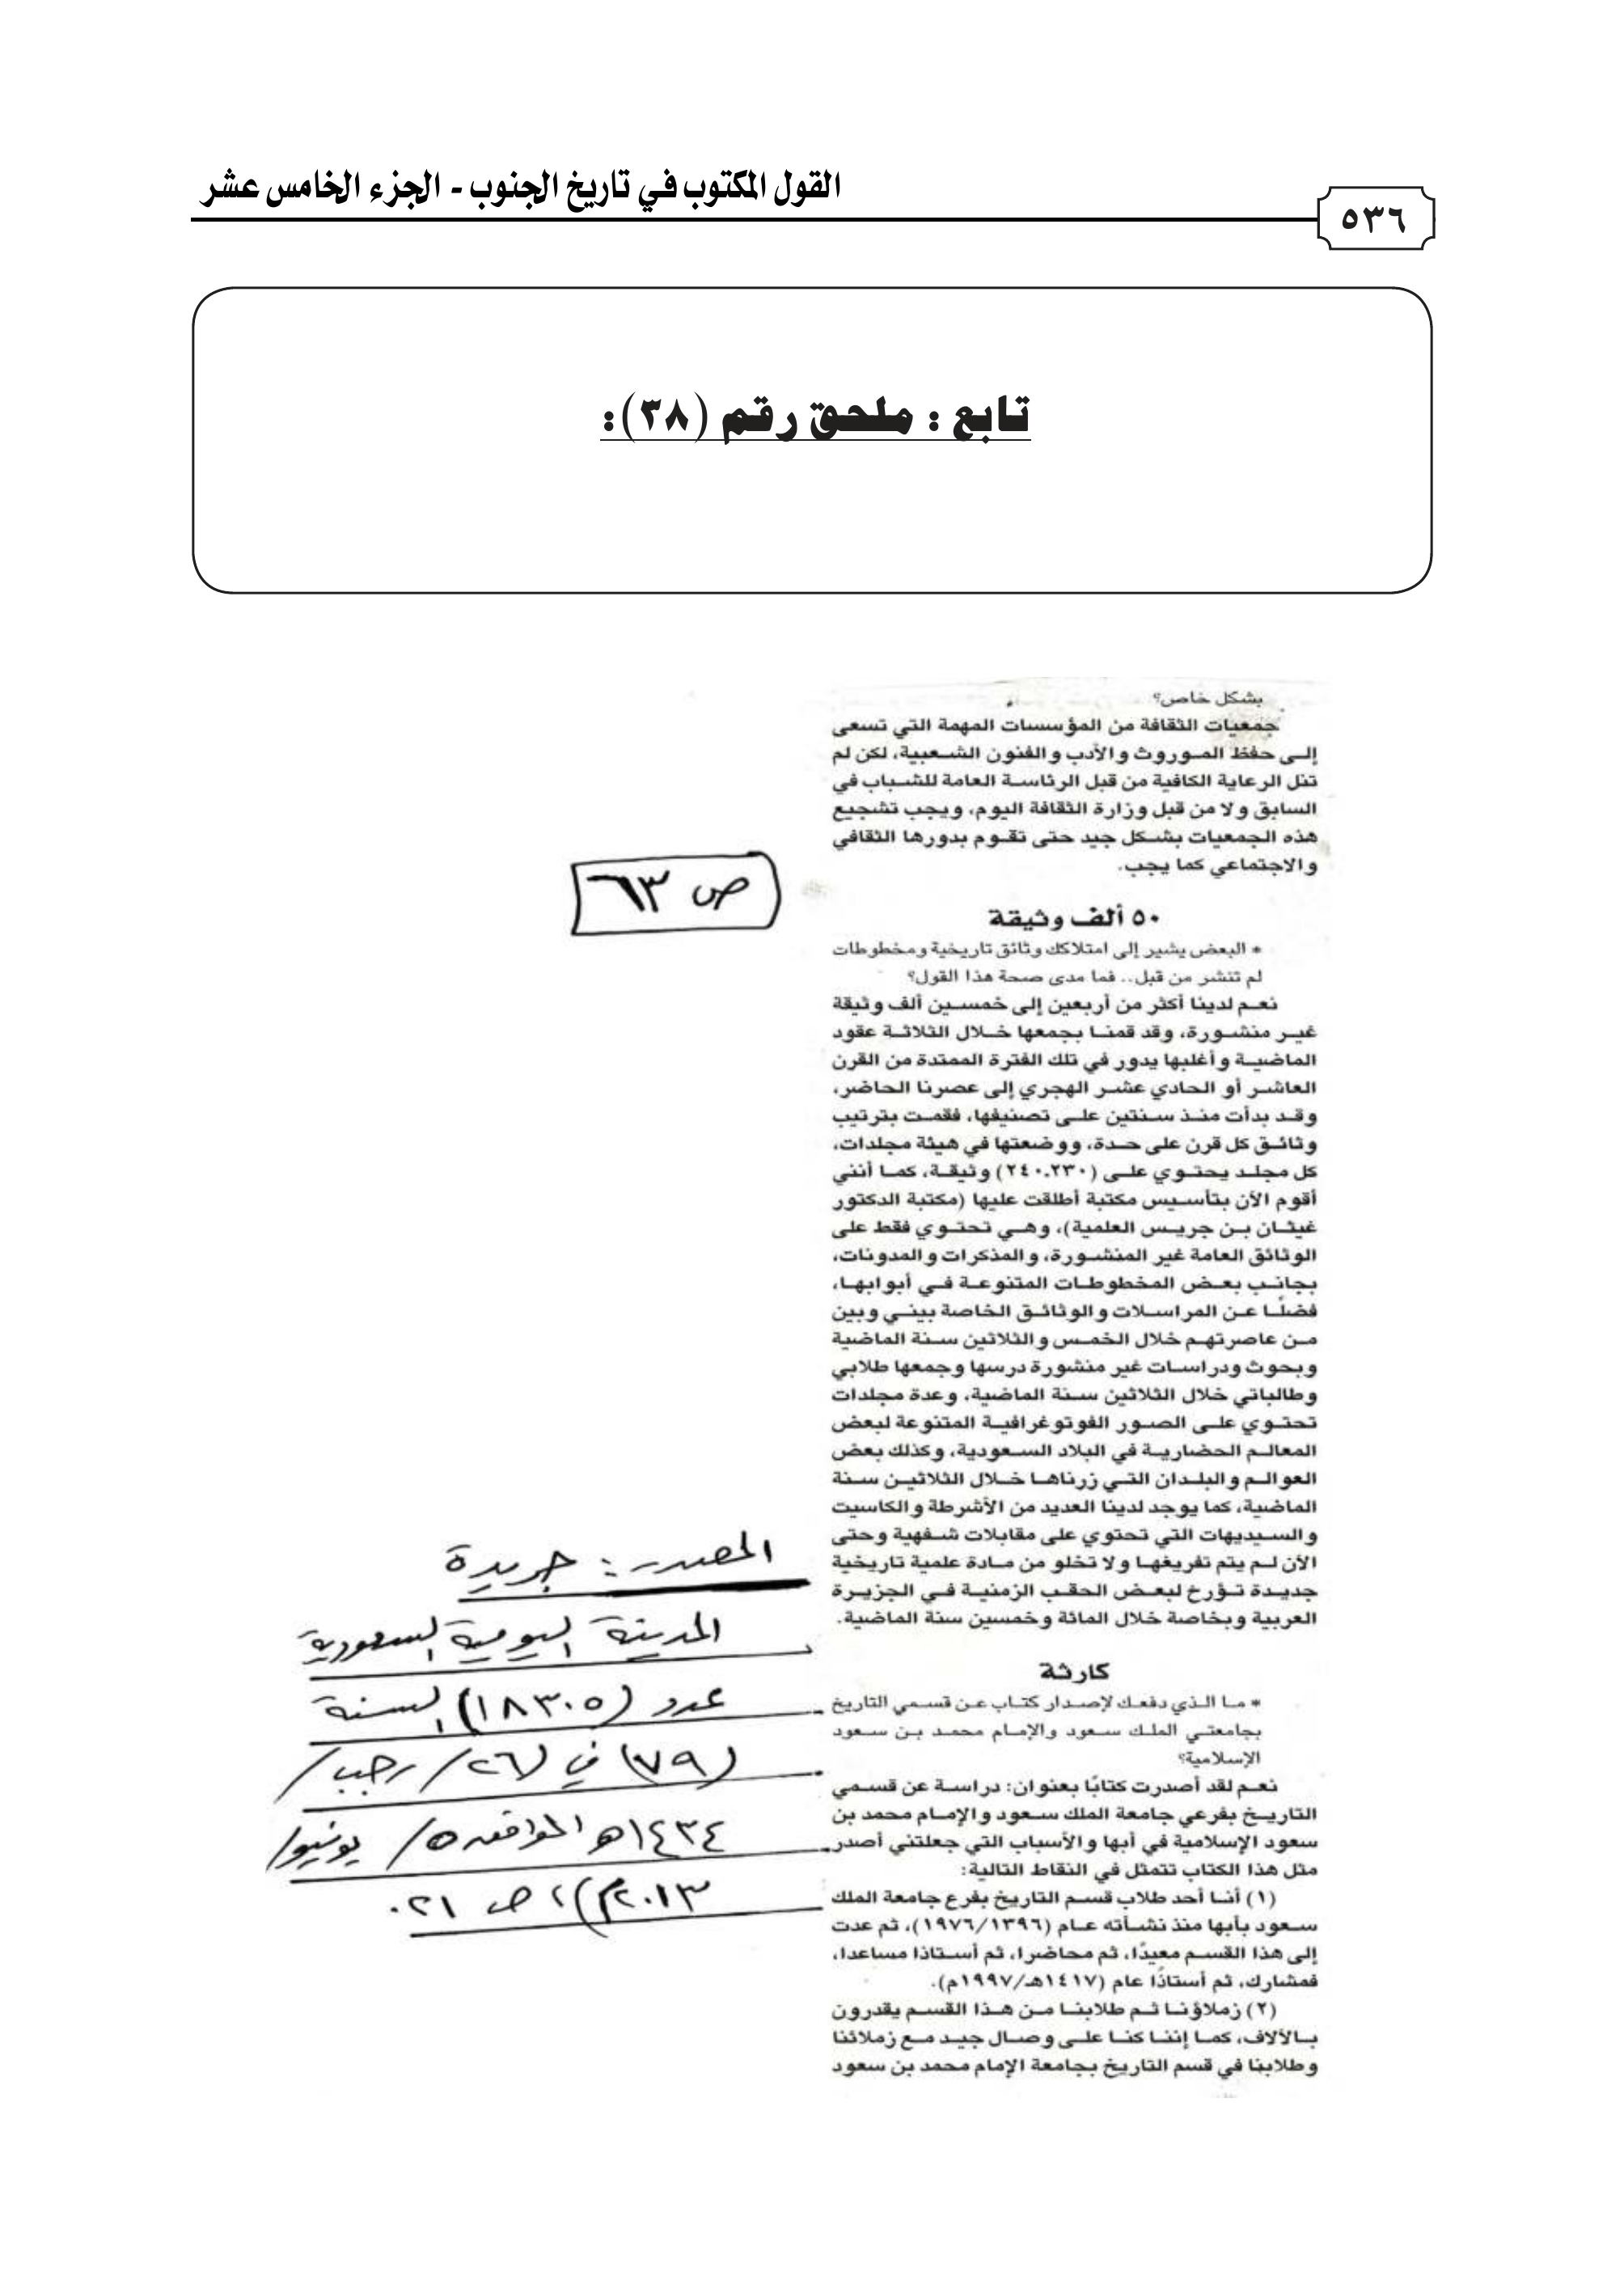 القول المكتوب في تاريخ الجنوب - الجزء الخامس عشر
٥٣٦
تابع : ملحق رقم (٣٨):
بشكل خاص؟
جمعيات الثقافة من المؤسسات المهمة التي تسعى
إلى حفظ الموروث والأدب والفنون الشعبية، لكن لم
تنل الرعاية الكافية من قبل الرئاسة العامة للشباب في
السابق ولا من قبل وزارة الثقافة اليوم، ويجب تشجيع
هذه الجمعيات بشكل جيد حتى تقوم بدورها الثقافي
والاجتماعي كما يجب.
٥٠ ألف وثيقة
* البعض يشير إلى امتلاكك وثائق تاريخية ومخطوطات
لم تنشر من قبل.. فما مدى صحة هذا القول؟
نعم لدينا أكثر من أربعين إلى خمسين ألف وثيقة
غير منشورة، وقد قمنا بجمعها خلال الثلاثة عقود
الماضية وأغلبها يدور في تلك الفترة الممتدة من القرن
العاشر أو الحادي عشر الهجري إلى عصرنا الحاضر،
وقد بدأت منذ سنتين على تصنيفها، فقمت بترتيب
وثائق كل قرن على حدة، ووضعتها في هيئة مجلدات،
كل مجلد يحتوي على (٢٣٠-٢٤٠) وثيقة، كما أنني
أقوم الآن بتأسيس مكتبة أطلقت عليها (مكتبة الدكتور
غيثان بن جريس العلمية)، وهي تحتوي فقط على
الوثائق العامة غير المنشورة، والمذكرات والمدونات،
بجانب بعض المخطوطات المتنوعة في أبوابها،
فضلًا عن المراسلات والوثائق الخاصة بيني وبين
من عاصرتهم خلال الخمس والثلاثين سنة الماضية
وبحوث ودراسات غير منشورة درسها وجمعها طلابي
وطالباتي خلال الثلاثين سنة الماضية، وعدة مجلدات
تحتوي على الصور الفوتوغرافية المتنوعة لبعض
المعالم الحضارية في البلاد السعودية، وكذلك بعض
العوالم والبلدان التي زرناها خلال الثلاثين سنة
الماضية، كما يوجد لدينا العديد من الأشرطة والكاسيت
والسيديهات التي تحتوي على مقابلات شفهية وحتى
الآن لم يتم تفريغها ولا تخلو من مادة علمية تاريخية
جديدة تؤرخ لبعض الحقب الزمنية في الجزيرة
العربية وبخاصة خلال المائة وخمسين سنة الماضية.
كارثة
* ما الذي دفعك لإصدار كتاب عن قسمي التاريخ
بجامعتي الملك سعود والإمام محمد بن سعود
الإسلامية؟
نعم لقد أصدرت كتابًا بعنوان: دراسة عن قسمي
التاريخ بفرعي جامعة الملك سعود والإمام محمد بن
سعود الإسلامية في أبها والأسباب التي جعلتني أصدر
مثل هذا الكتاب تتمثل في النقاط التالية:
(١) أنا أحد طلاب قسم التاريخ بفرع جامعة الملك
سعود بأبها منذ نشأته عام (١٣٩٦/١٩٧٦)، ثم عدت
إلى هذا القسم معيدًا، ثم محاضرا، ثم أستاذا مساعدا،
فمشارك، ثم أستاذًا عام (١٤١٧هـ/١٩٩٧م).
(٢) زملاؤنا ثم طلابنا من هذا القسم يقدرون
بالألاف، كما إننا كنا على وصال جيد مع زملائنا
وطلابنا في قسم التاريخ بجامعة الإمام محمد بن سعود
ص ٦٣
المصدر : جريدة
المدينة اليومية السعودية
عدد (١٨٣٠٥) السنة
(٧٩) في (٢٦/ رجب/
١٤٣٤هـ الموافق ٥/ يونيو/
٢٠١٣م)، ص ٢١.